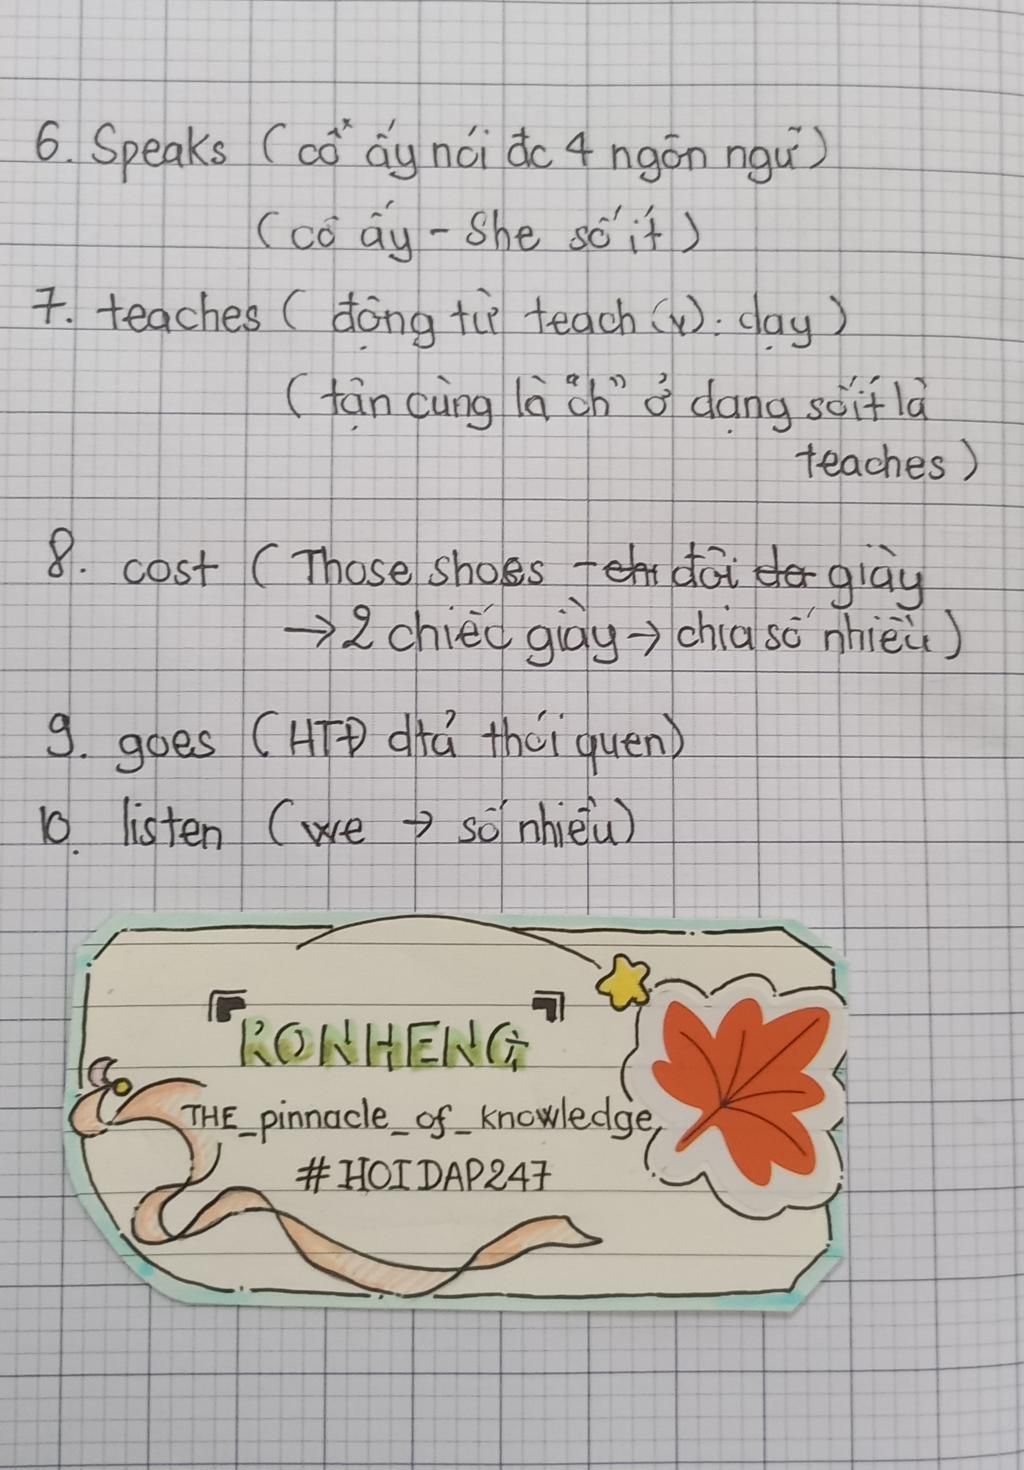 6. Speaks (cô ấy nói đc 4 ngôn ngữ)
(cô ấy - She số ít)
7. teaches (động từ teach (v): dạy)
(tận cùng là "ch" ở dạng số ít là
teaches)
8. cost (Those shoes - đôi giày
→ 2 chiếc giày → chia số nhiều)
9. goes (HTĐ dtả thói quen)
10. listen (we → số nhiều)
RONHENG
THE_pinnacle_of_knowledge
#HOIDAP247